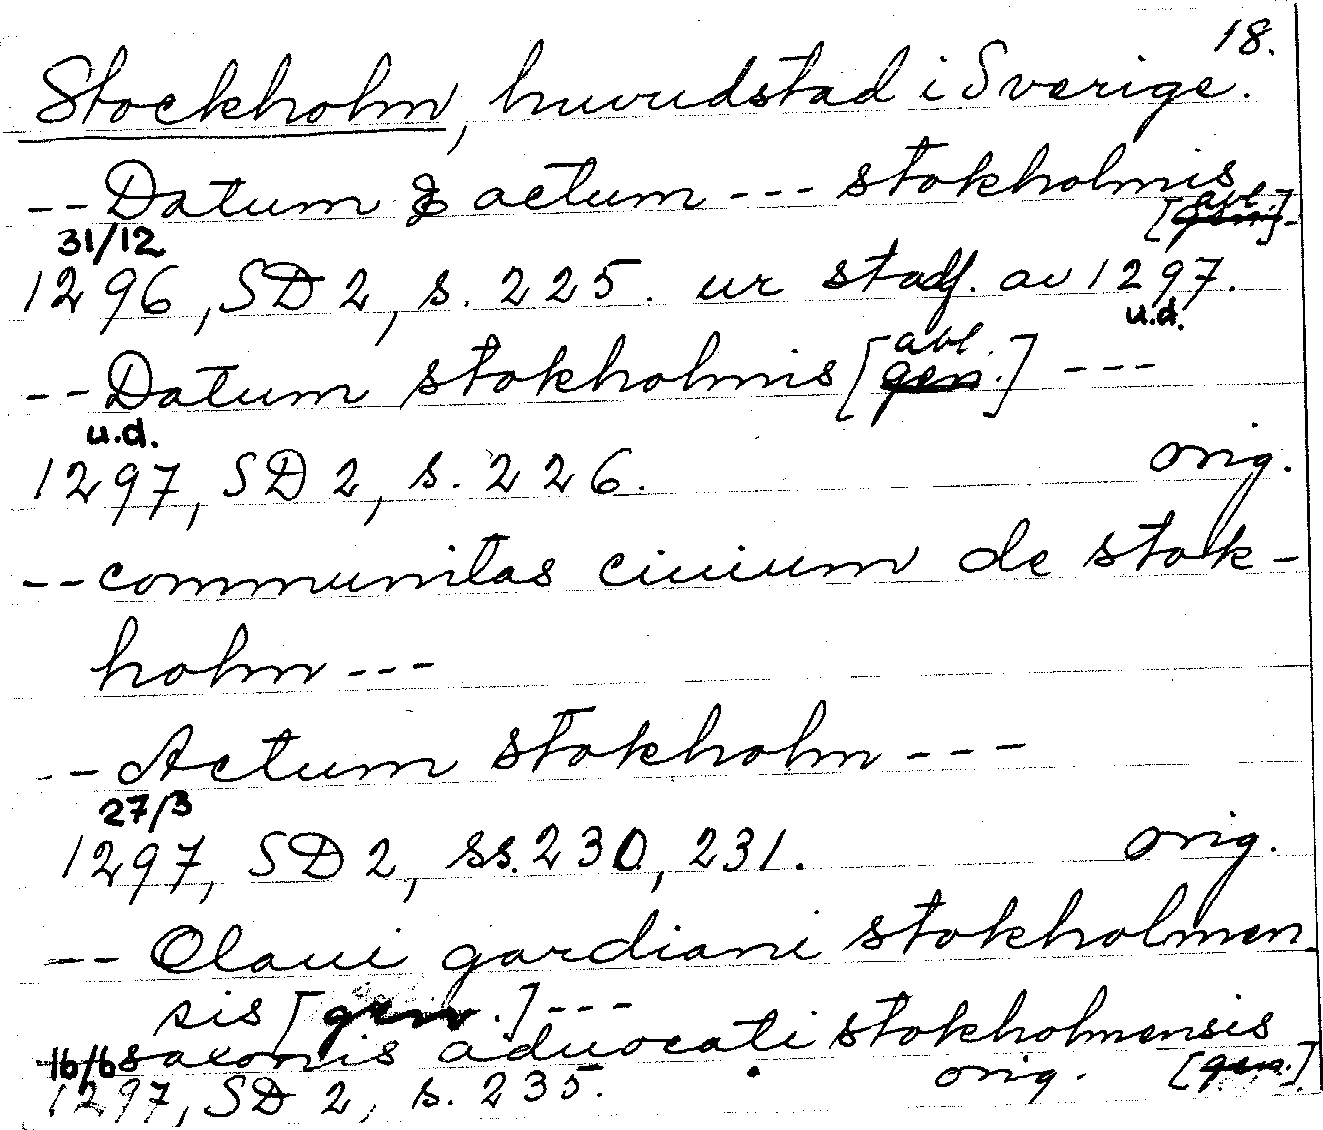 18.
Stockholm, huvudstad i Sverige.
-- Datum & actum --- stokholmis
[gen.] abl.
31/12
1296, SD 2, s. 225. ur stadf. av 1297.
u.d.
-- Datum stokholmis [gen.] abl. ---
u.d.
1297, SD 2, s. 226. orig.
-- communitas ciuium de stok-
holm ---
-- Actum stokholm ---
27/3
1297, SD 2, ss. 230, 231. orig.
-- Olaui gardiani stokholmen-
sis [gen.] ---
saxonis aduocati stokholmensis
16/6 orig. [gen.]
1297, SD 2, s. 235.